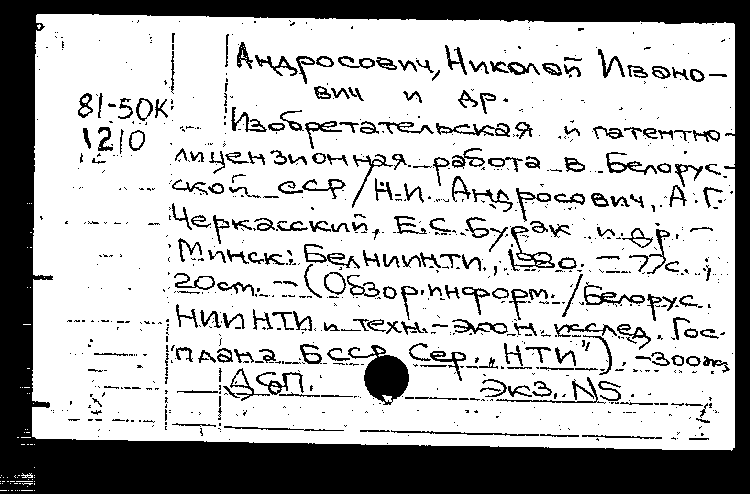 Андросович, Николай Ивано-
вич и др.
81-50К
1210
Изобретательская и патентно-
лицензионная работа в Белорус-
ской ССР / Н.И. Андросович, А.Г.
Черкасский, Е.С. Бурак и др. –
Минск: БелНИИНТИ, 1980. – 77с.;
20см. – (Обзор. информ. / Белорус.
НИИНТИ и техн.-экон. исслед. Гос-
плана БССР. Сер. „НТИ"). – 300
ДСП. Экз. N5.